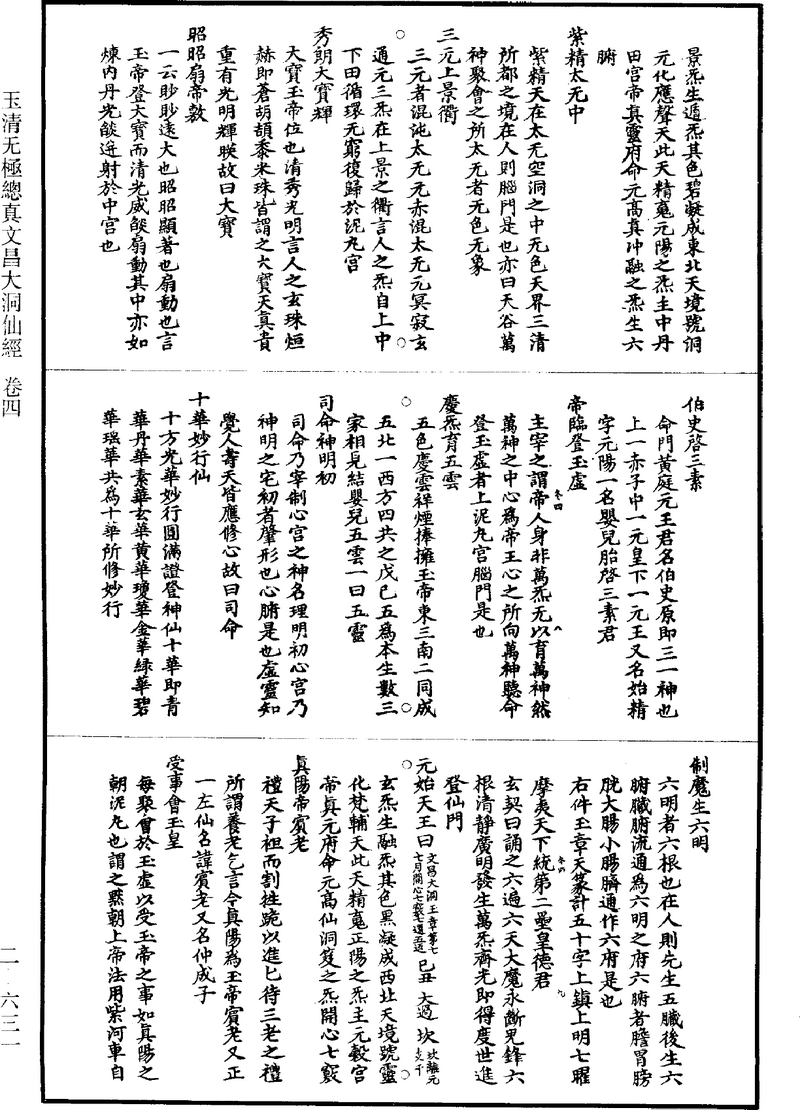 景炁生遁炁其色碧凝成東北天境號洞
元化應聲天此天精寬元陽之炁主中丹
田宮帝真靈府命元高真沖融之炁生六
腑
紫精太无中
紫精天在太无空洞之中无色天界三清
所都之境在人則腦門是也亦曰天谷萬
神聚會之所太无者无色无象
三元上景衢
三元者混沌太无元赤混太无元冥寂玄
通元三炁在上景之衢言人之炁自上中
下田循環无窮復歸於泥丸宮
秀朗大寶輝
大寶玉帝位也清秀光明言人之玄珠烜
赫即蒼胡頡黍米珠皆謂之大寶天真貴
重有光明輝映故曰大寶
昭昭扇帝敷
一云眇眇遠大也昭昭顯著也扇動也言
玉帝登大寶而清光威燄扇動其中亦如
煉內丹光燄迸射於中宮也
伯史啓三素
命門黃庭元王君名伯史原即三一神也
上一赤子中一元皇下一元王又名始精
字元陽一名嬰兒胎啓三素君
帝臨登玉虛
主宰之謂帝人身非萬炁无以育萬神然
萬神之中心為帝王心之所向萬神聽命
登玉虛者上泥丸宮腦門是也
慶炁育五雲
五色慶雲祥煙捧擁玉帝東三南二同成
五北一西方四共之戊己五為本生數三
家相見結嬰兒五雲一曰五靈
司命神明初
司命乃宰制心宮之神名理明初心宮乃
神明之宅初者肇形也心腑是也虛靈知
覺人壽夭皆應修心故曰司命
十華妙行仙
十方光華妙行圓滿證登神仙十華即青
華丹華素華玄華黃華瓊華金華綠華碧
華瑤華共為十華所修妙行
制魔生六明
六明者六根也在人則先生五臟後生六
腑臟腑流通為六明之府六腑者膽胃膀
胱大腸小腸臍通作六府是也
右件玉章天篆計五十字上鎮上明七曜
摩夷天下統第二壘皇德君
玄契曰誦之六遍六天大魔永斷咒鋒六
根清靜廣明發生萬炁齊光即得度世進
登仙門
元始天王曰 文昌大洞玉章第七 己丑 大過 坎
玄炁生融炁其色黑凝成西北天境號靈
化梵輔天此天精寬正陽之炁主元轂宮
帝真元府命元高仙洞笈之炁開心七竅
真陽帝賓老
禮天子袒而割牲跪以進匕待三老之禮
所謂養老乞言令真陽為玉帝賓老又正
一左仙名諱賓老又名仲成子
受事會玉皇
每聚會於玉虛以受玉帝之事如真陽之
朝泥丸也謂之黙朝上帝法用紫河車自
玉清无極總真文昌大洞仙經 卷四
二-六三一